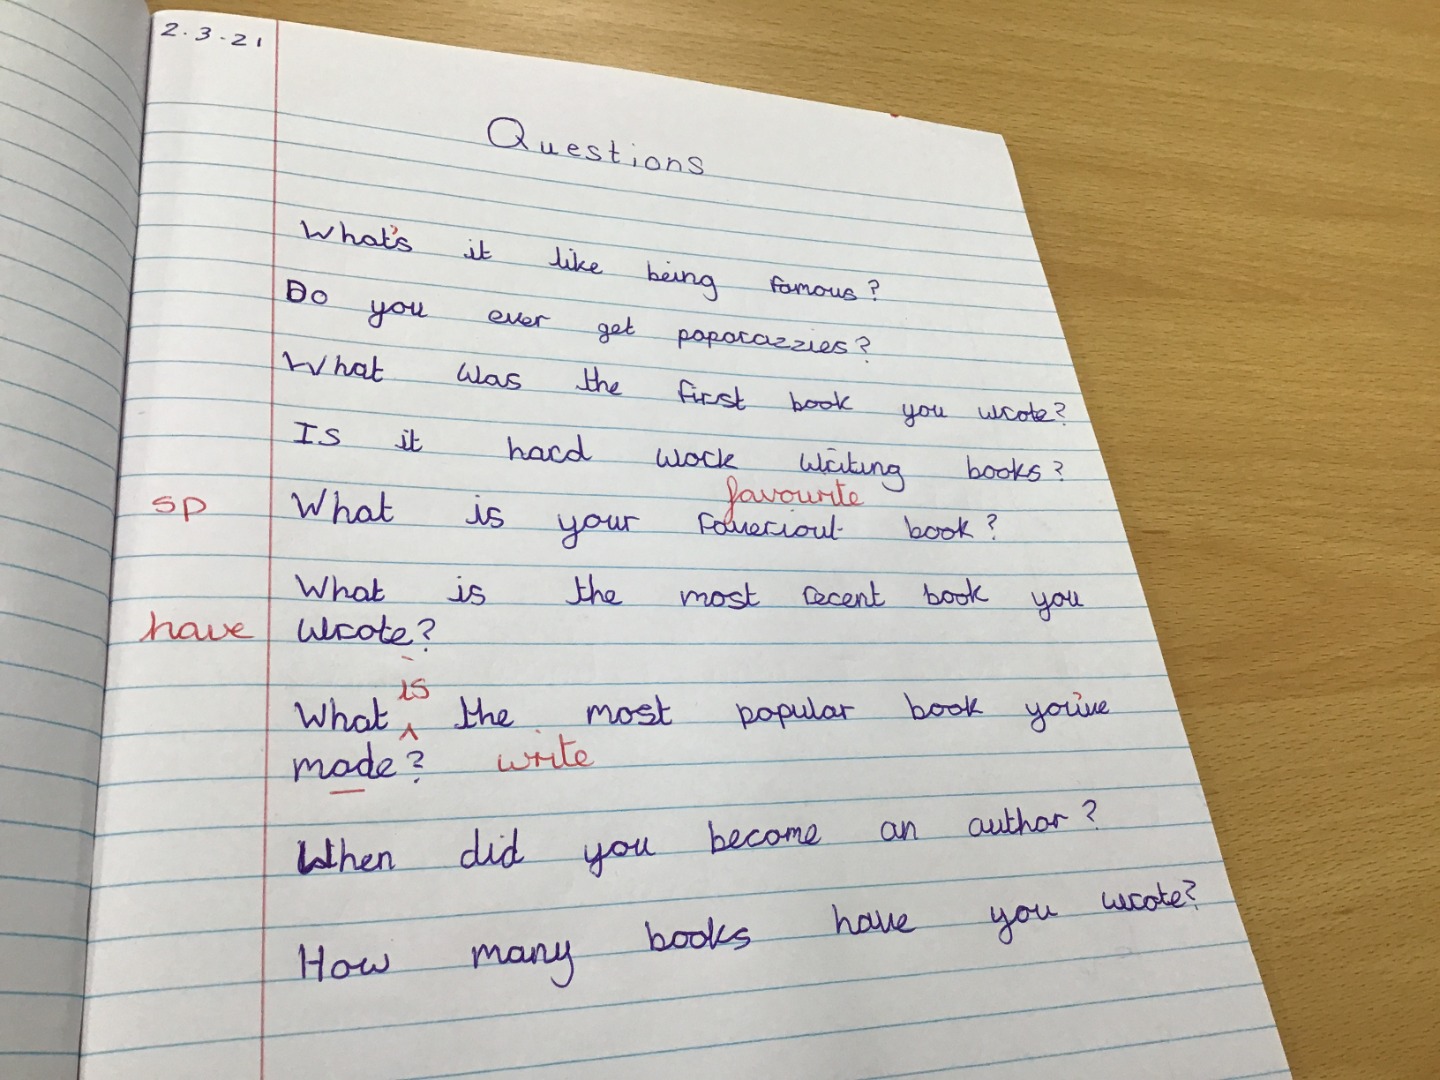 2.3.21
Questions
What's it like being famous?
Do you ever get paparazzies?
What was the first book you wrote?
Is it hard work writing books?
favourite
sp What is your faveriout book?
What is the most recent book you
have wrote?
is
What ^ the most popular book you've
made? write
When did you become an author?
How many books have you wrote?